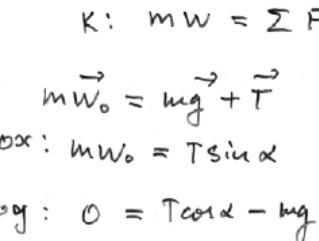 K: mw = Σ F
m\vec{w}₀ = m\vec{g} + \vec{T}
ox: mw₀ = T sin α
oy: 0 = T cos α - mg